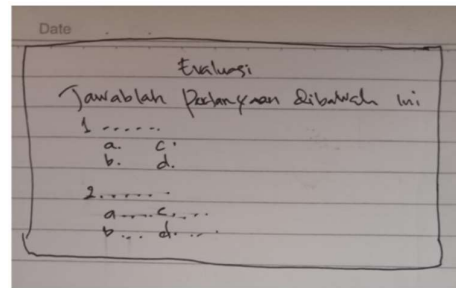 Date
Evaluasi
Jawablah Pertanyaan dibawah ini
1 ......
a. c.
b. d.
2.......
a.... c.....
b... d.....